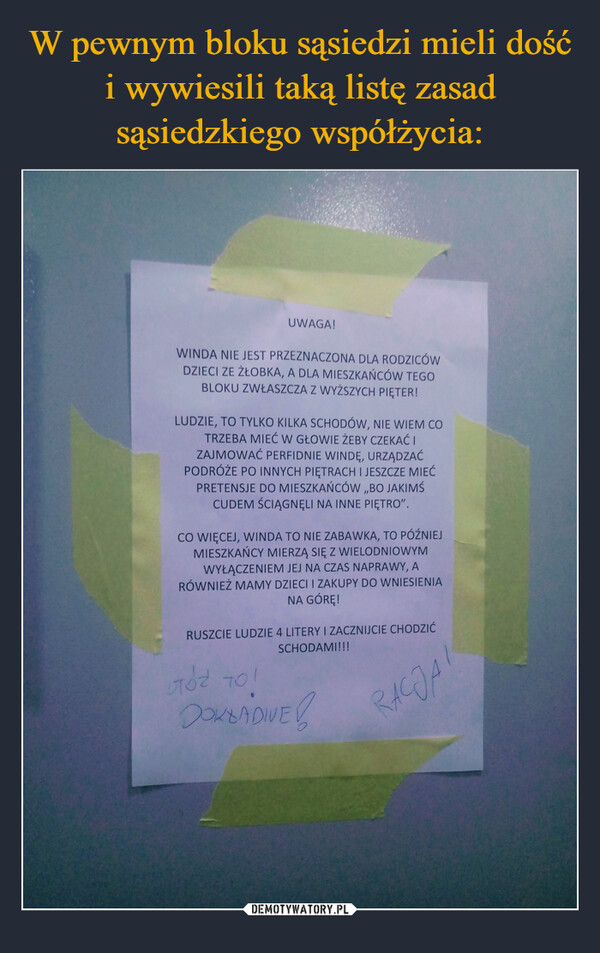 W pewnym bloku sąsiedzi mieli dość
i wywiesili taką listę zasad
sąsiedzkiego współżycia:
UWAGA!
WINDA NIE JEST PRZEZNACZONA DLA RODZICÓW
DZIECI ZE ŻŁOBKA, A DLA MIESZKAŃCÓW TEGO
BLOKU ZWŁASZCZA Z WYŻSZYCH PIĘTER!
LUDZIE, TO TYLKO KILKA SCHODÓW, NIE WIEM CO
TRZEBA MIEĆ W GŁOWIE ŻEBY CZEKAĆ I
ZAJMOWAĆ PERFIDNIE WINDĘ, URZĄDZAĆ
PODRÓŻE PO INNYCH PIĘTRACH I JESZCZE MIEĆ
PRETENSJE DO MIESZKAŃCÓW „BO JAKIMŚ
CUDEM ŚCIĄGNĘLI NA INNE PIĘTRO”.
CO WIĘCEJ, WINDA TO NIE ZABAWKA, TO PÓŹNIEJ
MIESZKAŃCY MIERZĄ SIĘ Z WIELODNIOWYM
WYŁĄCZENIEM JEJ NA CZAS NAPRAWY, A
RÓWNIEŻ MAMY DZIECI I ZAKUPY DO WNIESIENIA
NA GÓRĘ!
RUSZCIE LUDZIE 4 LITERY I ZACZNIJCIE CHODZIĆ
SCHODAMI!!!
OTÓŻ TO!
RACJA!
DOKŁADNIE!
DEMOTYWATORY.PL